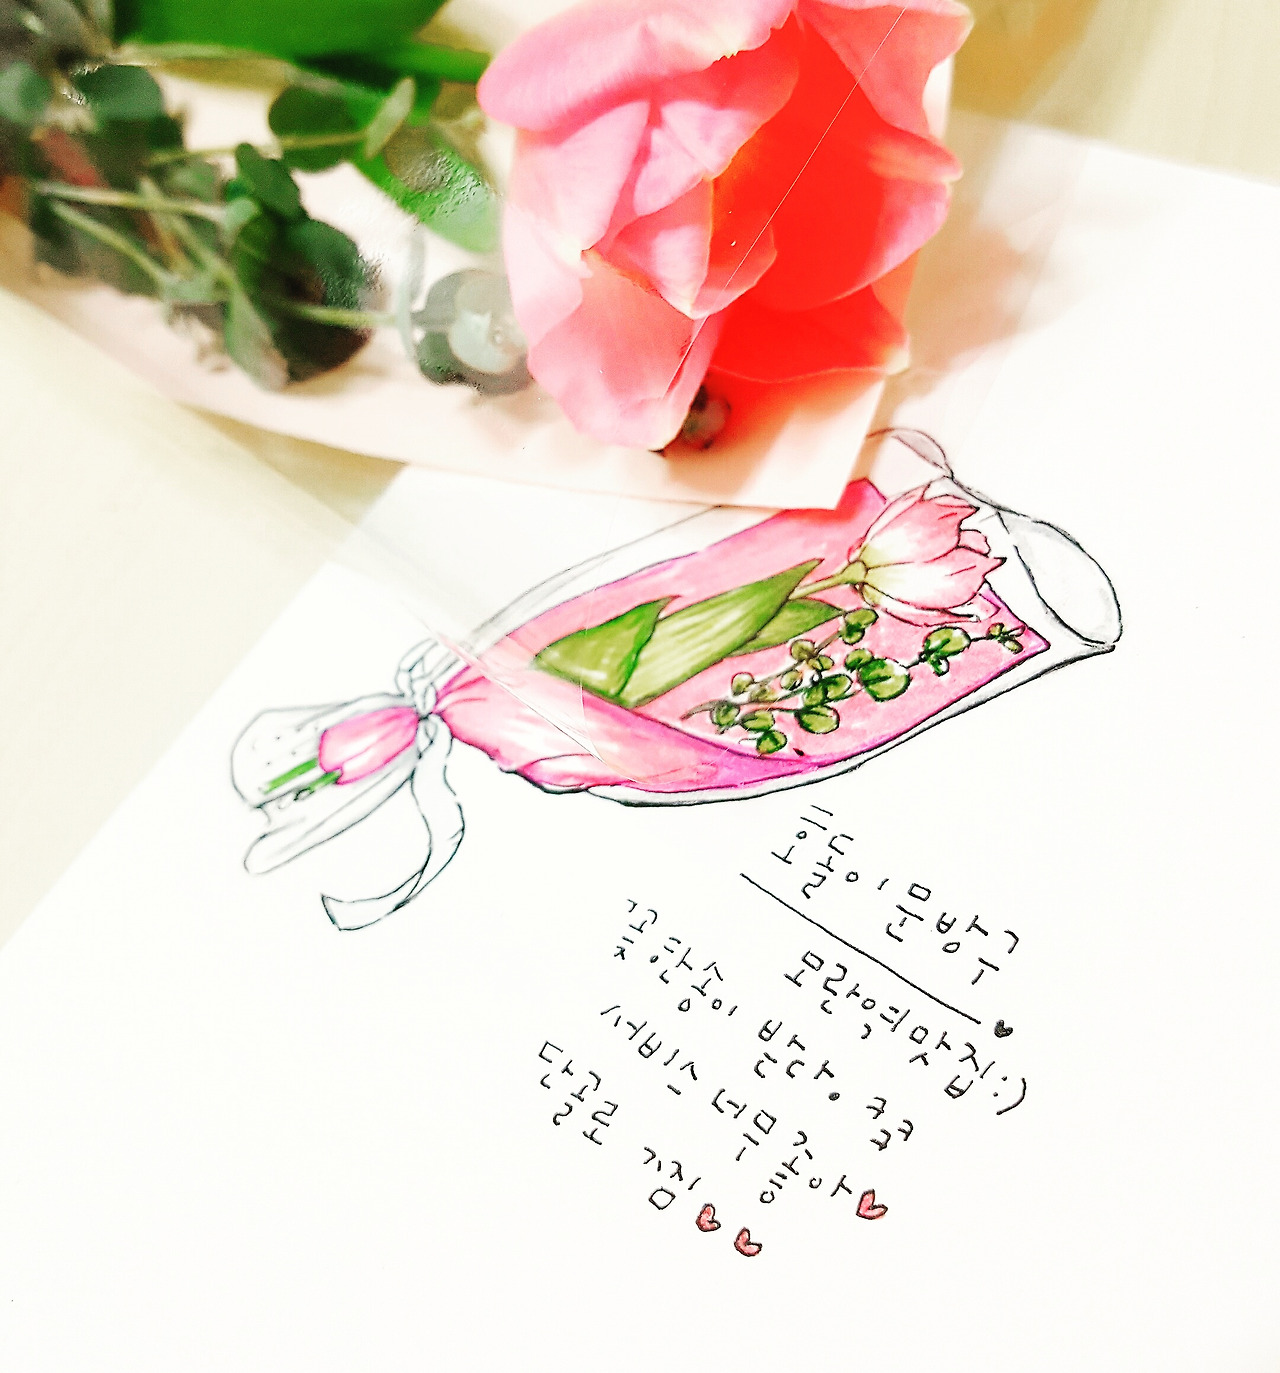 호돌이 문방구
♥
모란역 맛집 :)
꽃 한송이 받다.
서비스 너무 좋아♥
단골로 찜♥♥